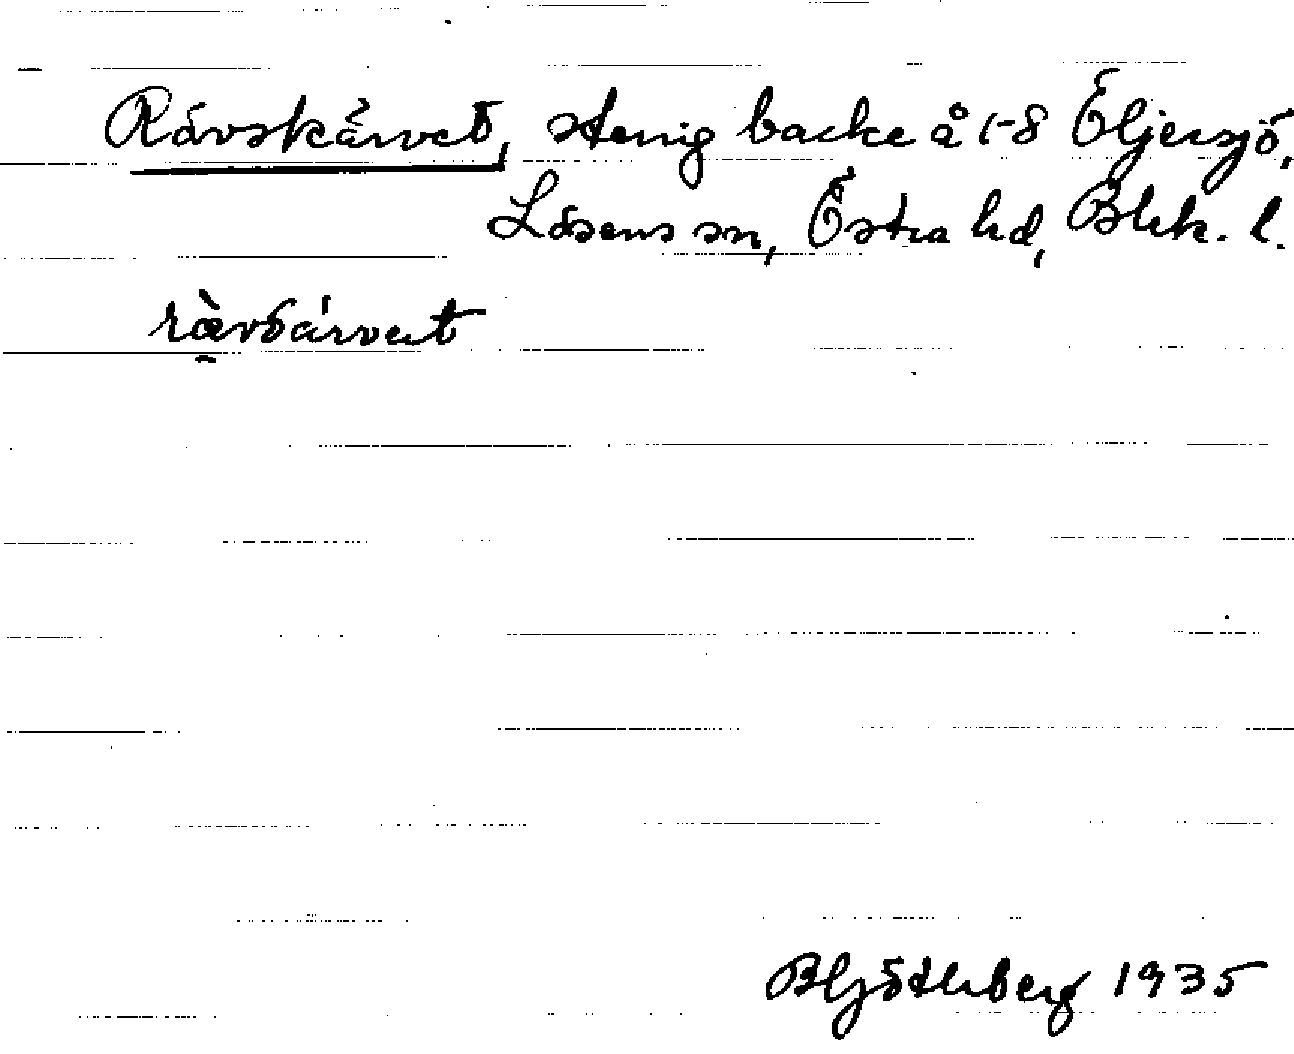 Rävskärvet, stenig backe å 1-8 Öljersjö,
Lösens sn, Östra hd, Blek. l.
BGöthberg 1935